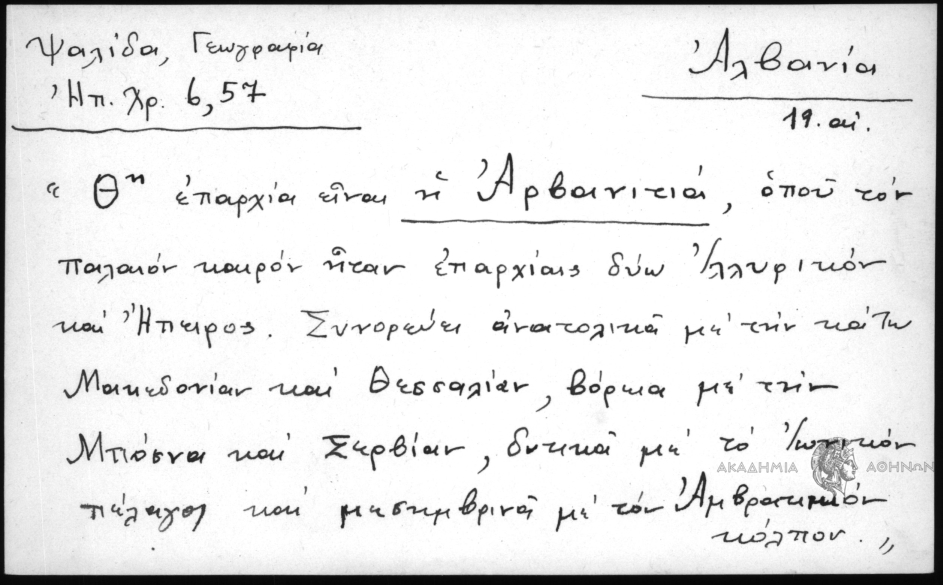 Ψαλίδα, Γεωγραφία
Ἠπ. Χρ. 6,57
Ἀλβανία
19. αἰ.
“ Θη ἐπαρχία εἶναι ἡ Ἀρβανιτιά, ὁποῦ τόν
παλαιόν καιρόν ἦταν ἐπαρχίαις δύω Ἰλλυρικόν
καί Ἤπειρος. Συνορεύει ἀνατολικά μέ τήν κάτω
Μακεδονίαν καί Θεσσαλίαν, βόρεια μέ τήν
Μπόσνα καί Σερβίαν, δυτικά μέ τό Ἰωνικόν
πέλαγος καί μεσημβρινά μέ τόν Ἀμβρακικόν
κόλπον. „
ΑΚΑΔΗΜΙΑ ΑΘΗΝΩΝ